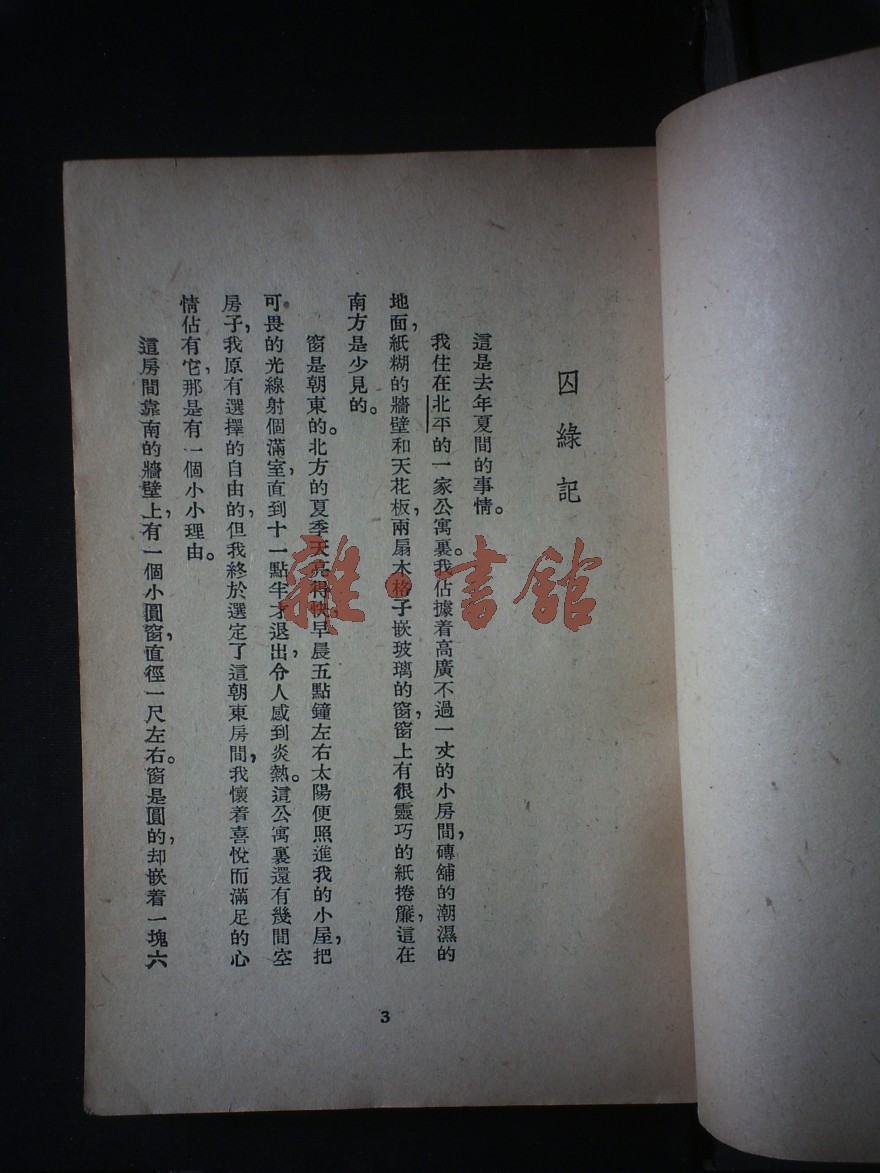 囚綠記
這是去年夏間的事情。
我住在北平的一家公寓裏。我佔據着高廣不過一丈的小房間，磚鋪的潮濕的
地面，紙糊的牆壁和天花板，兩扇木格子嵌玻璃的窗，窗上有很靈巧的紙捲簾，這在
南方是少見的。
窗是朝東的。北方的夏季天亮得快，早晨五點鐘左右太陽便照進我的小屋，把
可畏的光線射個滿室，直到十一點半才退出，令人感到炎熱。這公寓裏還有幾間空
房子，我原有選擇的自由的，但我終於選定了這朝東房間，我懷着喜悅而滿足的心
情佔有它，那是有一個小小理由。
這房間靠南的牆壁上，有一個小圓窗，直徑一尺左右。窗是圓的，却嵌着一塊六
3
雜·書館